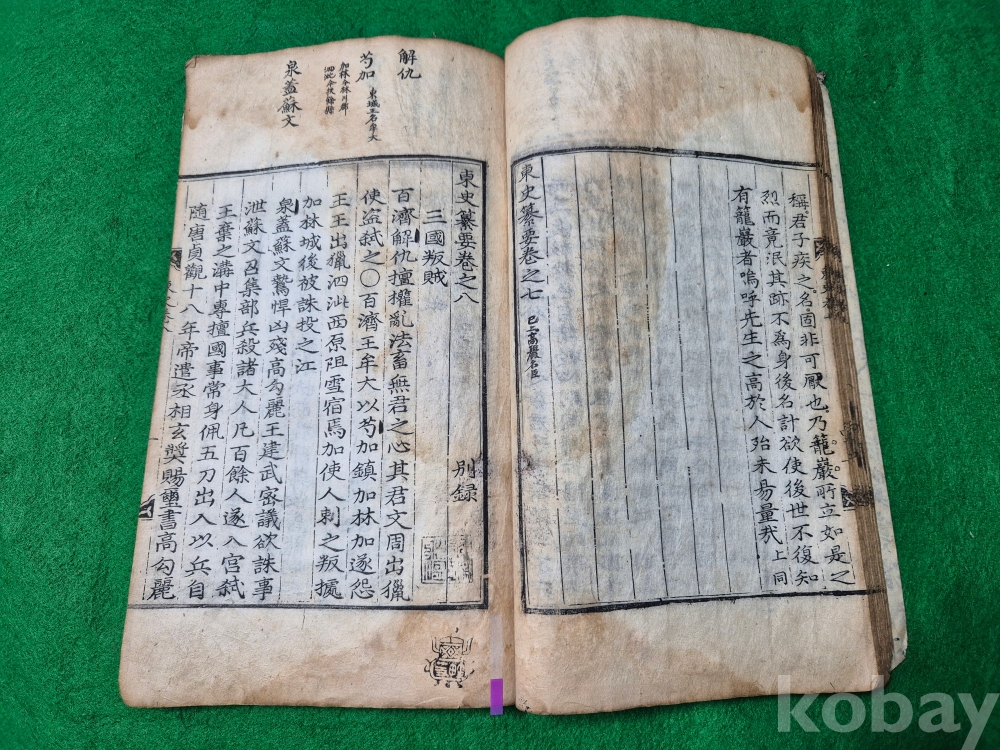 稱君子疾之名固非可厭也乃籠巖所立如是之
烈而竟泯其跡不爲身後名計欲使後世不復知
有籠巖者嗚呼先生之高於人殆未易量哉上同
東史纂要卷之七
解仇
芍加
東城王名牟大
加林今林川郡
泉蓋蘇文
東史纂要卷之八
別錄
三國叛賊
百濟解仇擅權亂法畜無君之心其君文周出獵
使盜弑之〇百濟王牟大以芍加鎮加林加遂怨
王王出獵泗沘西原阻雪宿焉加使人刺之叛據
加林城後被誅投之江
泉蓋蘇文鷙悍凶殘高勾麗王建武密議欲誅事
泄蘇文召集部兵殺諸大人凡百餘人遂入宮弑
王棄之溝中專擅國事常身佩五刀出入以兵自
隨唐貞觀十八年帝遣丞相玄奬賜璽書高勾麗
kobay